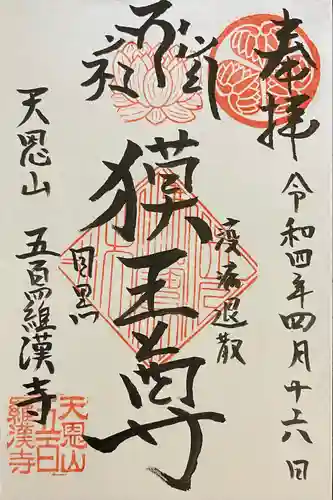 奉拝
令和四年四月十六日
疫病退散
獏王尊
目黒
天恩山
五百羅漢寺
天恩山
五百
羅漢寺